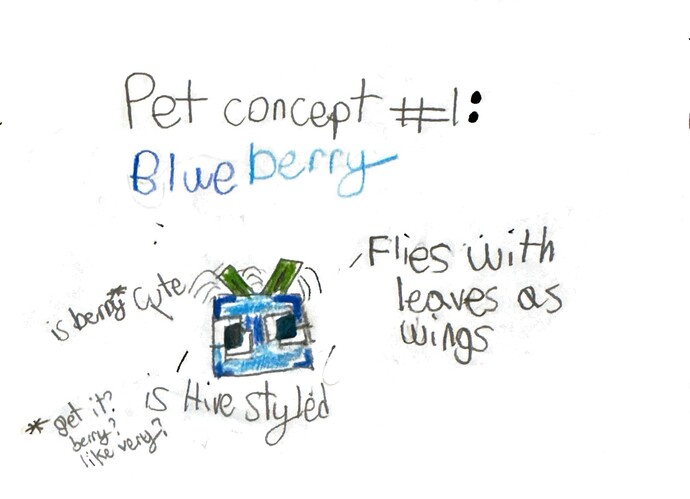 Pet concept #1:
Blueberry
Flies with
leaves as
wings
is berry* Cute
is Hive styled
* get it?
berry?
like very?